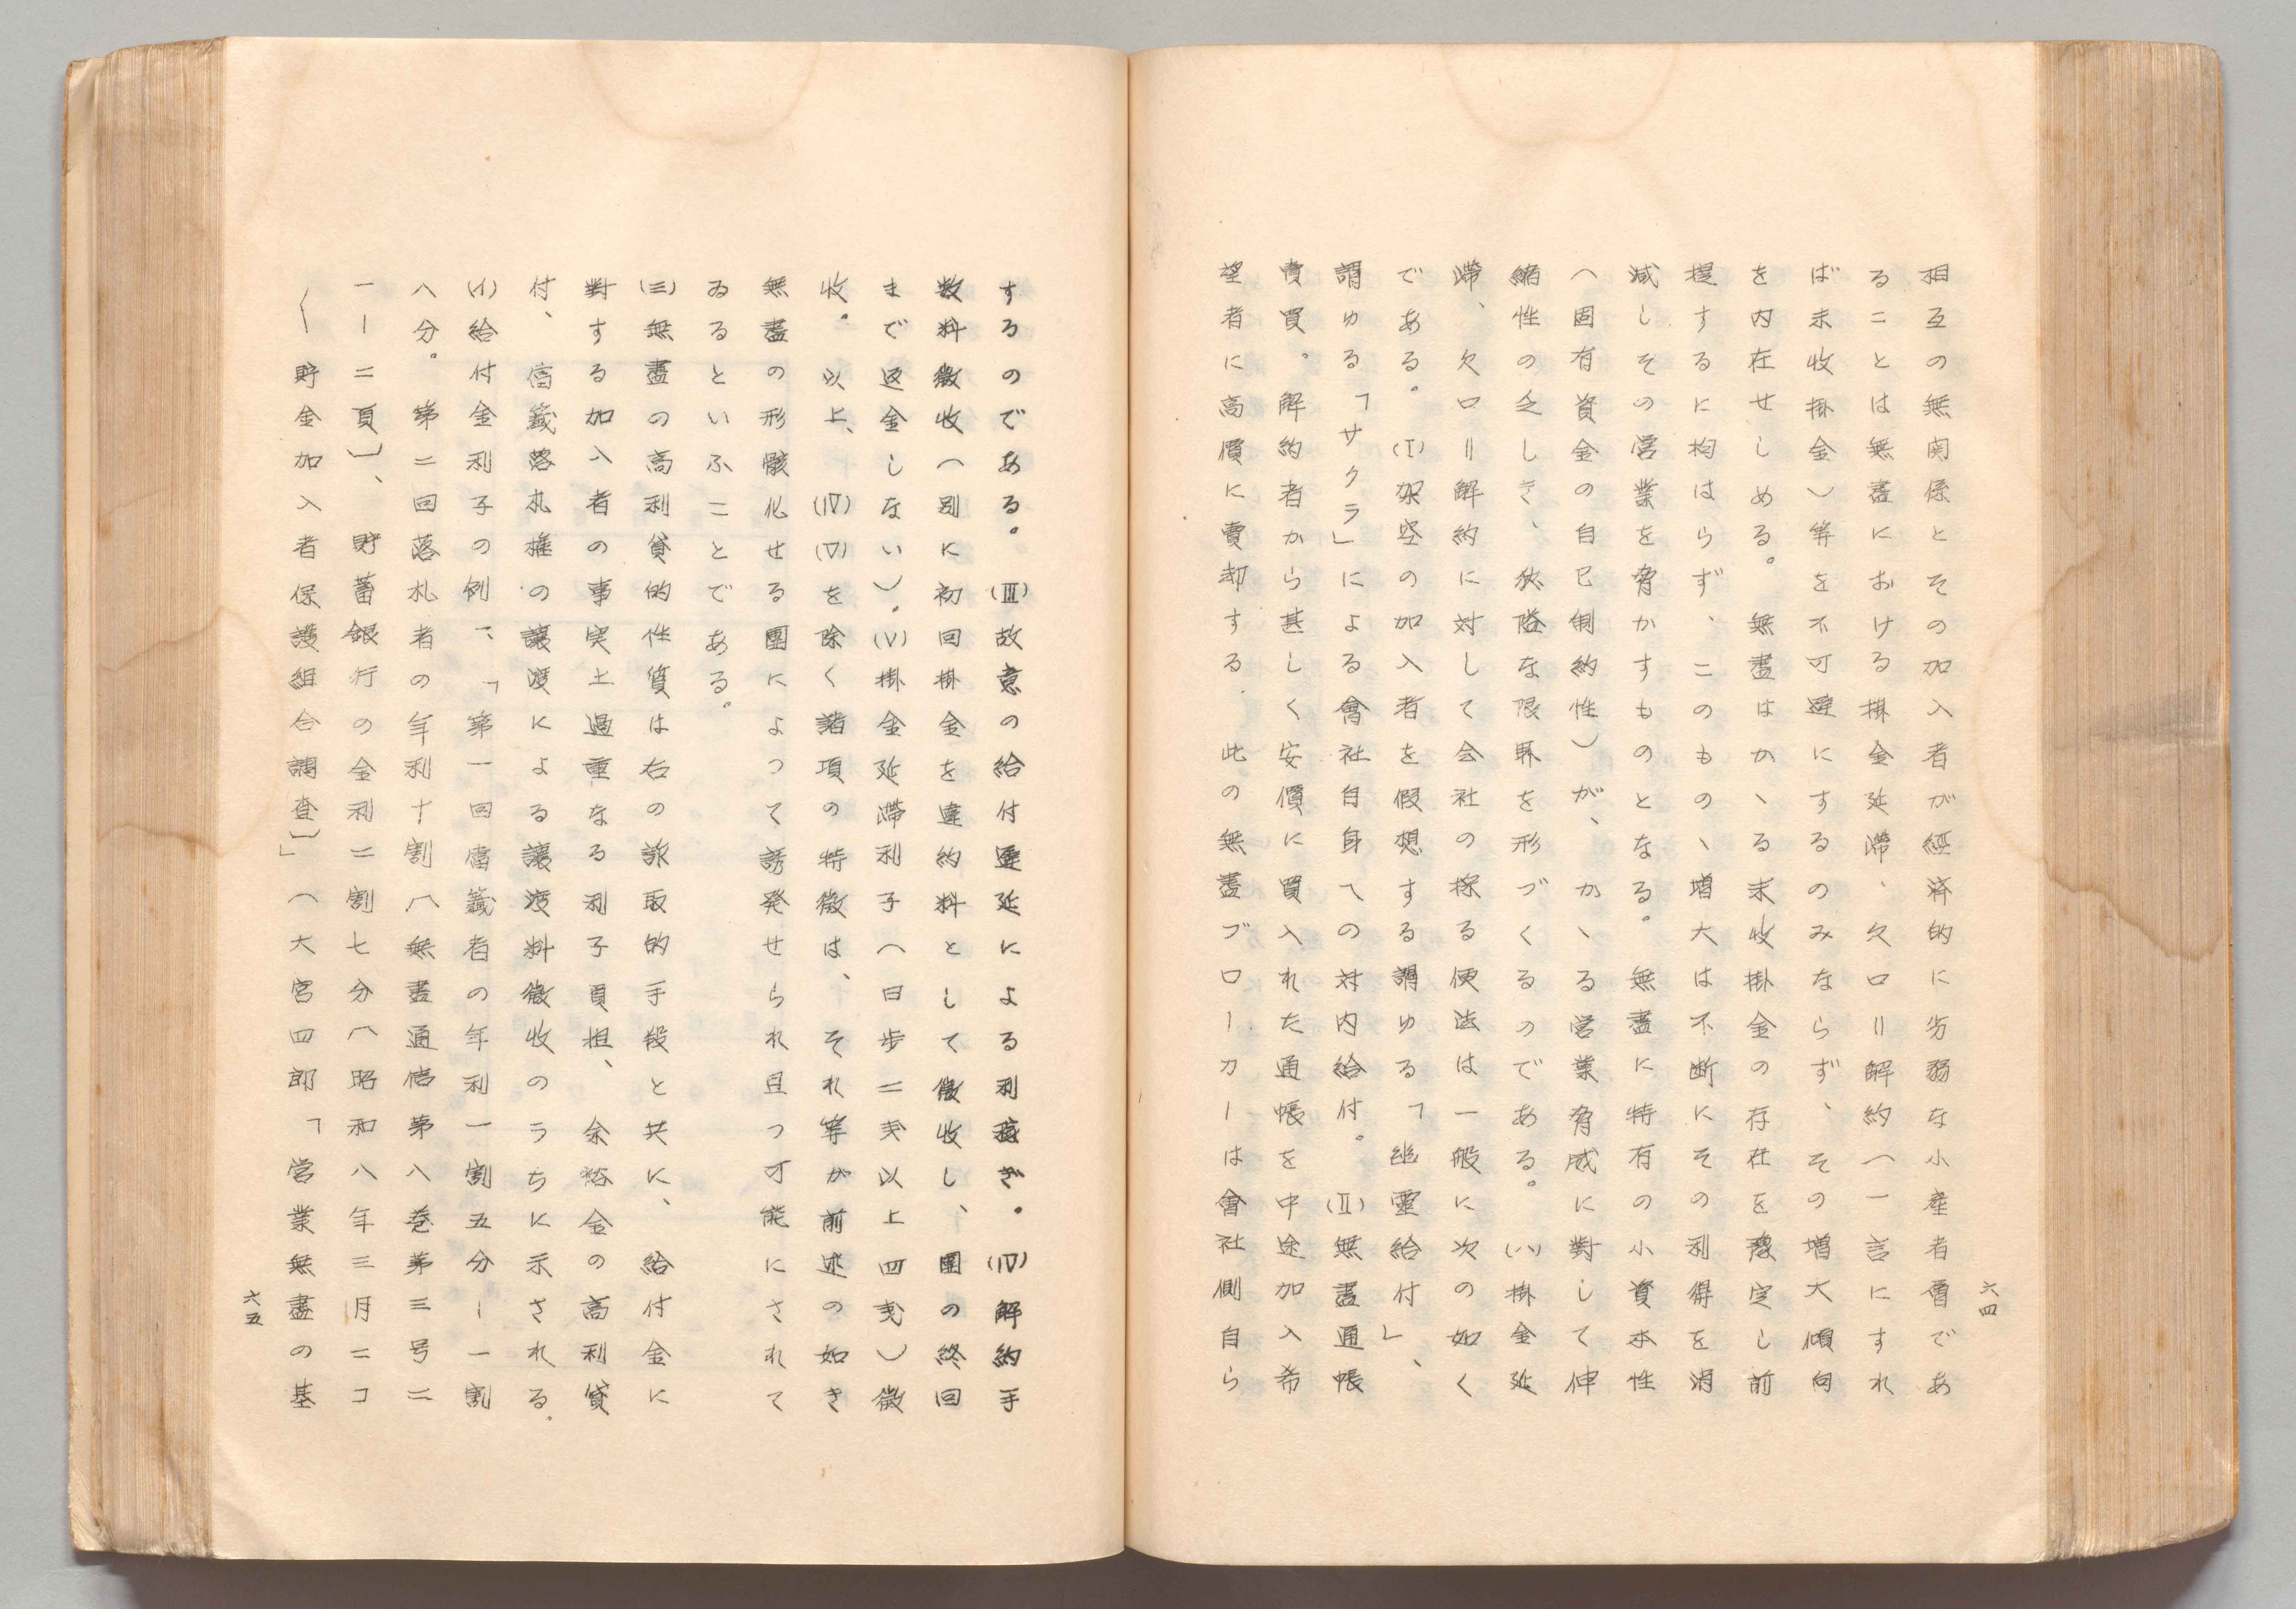 六四
相互の無関係とその加入者が經済的に劣弱な小産者層であ
ることは無盡における掛金延滞、欠口=解約(一言にすれ
ば未收掛金)等を不可避にするのみならず、その増大傾向
を内在せしめる。無盡はかゝる未收掛金の存在を豫定し前
提するに拘はらず、このものゝ増大は不断にその利得を消
減しその営業を脅かすものとなる。無盡に特有の小資本性
(固有資金の自己制約性)が、かゝる営業脅威に對して伸
縮性の乏しき、狹隘な限界を形づくるのである。(ハ)掛金延
滞、欠口=解約に対して会社の採る便法は一般に次の如く
である。(I)架空の加入者を假想する謂ゆる「幽霊給付」、
謂ゆる「サクラ」による會社自身への対内給付。(II)無盡通帳
賣買。解約者から甚しく安價に買入れた通帳を中途加入希
望者に高價に賣却する.此の無盡ブローカーは會社側自ら
するのである。(III)故意の給付遷延による利稼ぎ。(IV)解約手
数料徴收(別に初回掛金を違約料として徴收し、團の終回
まで返金しない)。(V)掛金延滞利子(日歩二戋以上四戋)徴
收。以上、(IV)(V)を除く諸項の特徴は、それ等が前述の如き
無盡の形骸化せる團によつて誘発せられ且つ可能にされて
ゐるといふことである。
(三)無盡の高利貸的性質は右の詐取的手段と共に、給付金に
對する加入者の事実上過重なる利子負担、余裕金の高利貸
付、當籤落札権の譲渡による譲渡料徴收のうちに示される。
(イ)給付金利子の例一、「第一回當籤者の年利一割五分ー一割
八分。第二回落札者の年利十割〔無盡通信第八巻第三号二
一ー二頁〕、貯蓄銀行の金利二割七分〔昭和八年三月二コ
〱貯金加入者保護組合調査〕」(大宮四郎「営業無盡の基
六五